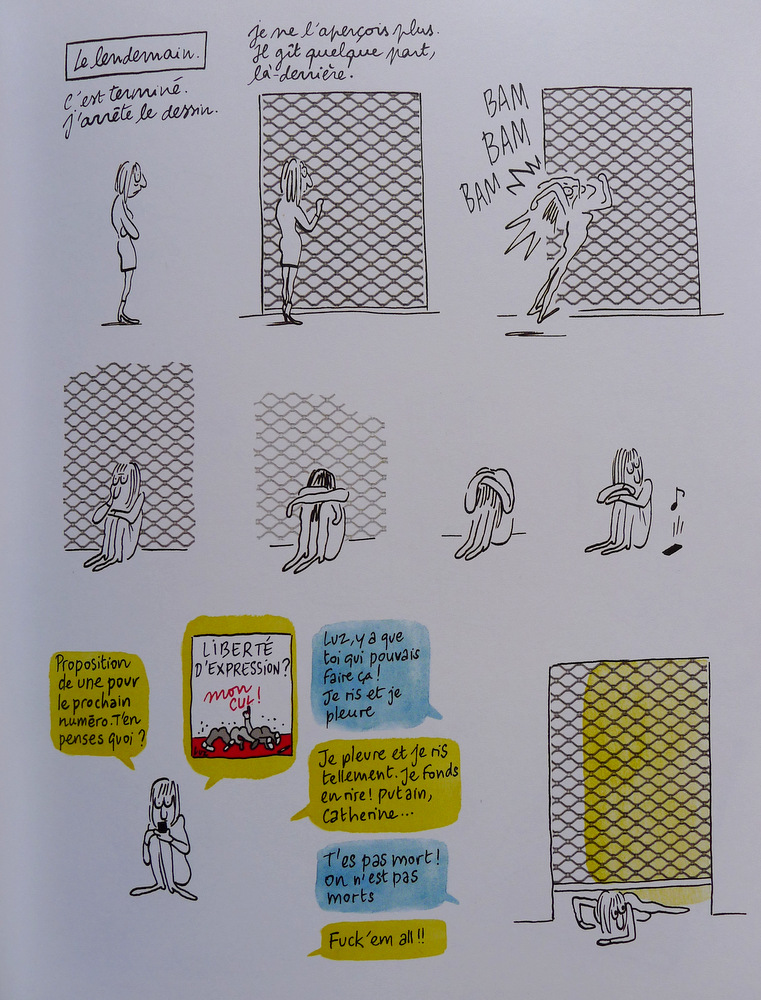 Le lendemain.
C'est terminé.
J'arrête le dessin.
Je ne l'aperçois plus.
Il gît quelque part,
là-derrière.
BAM
BAM
BAM
Proposition
de une pour
le prochain
numéro. T'en
penses quoi ?
LIBERTÉ
D'EXPRESSION?
mon
CUL!
Luz, y a que
toi qui pouvais
faire ça !
Je ris et je
pleure
Je pleure et je ris
tellement. Je fonds
en rire ! Putain,
Catherine...
T'es pas mort !
On n'est pas
morts
Fuck'em all !!